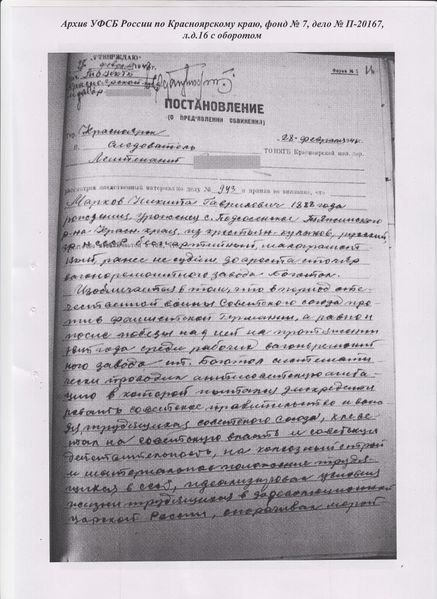 Архив УФСБ России по Красноярскому краю, фонд № 7, дело № П-20167,
л.д.16 с оборотом
"УТВЕРЖДАЮ"
Красноярской
Форма № 5
ПОСТАНОВЛЕНИЕ
(О ПРЕД'ЯВЛЕНИИ ОБВИНЕНИЯ)
гор. Красноярск
28 февраля
Я, Следователь ТОНКГБ Красноярской жел. дор.
Лейтенант
рассмотрев следственный материал по делу № 943 и приняв во внимание, что
Марков Никита Гаврилович 1882 года
рождения, уроженец с. Подсосенное
р-на Красн. края, из крестьян кулаков, русский
гр-н СССР беспартийный, малограмот
ный, ранее не судим до ареста столяр
вагоноремонтного завода Боготол.
Изобличается в том, что в период оте-
чественной войны Советского союза про-
тив фашистской Германии, а равно и
после победы над ней на протяжении
года среди рабочих вагоноремонт
ного завода ст. Боготол системати
чески проводил антисоветскую агита-
цию в которой пытался дискредити
ровать советское правительство и вож-
дя трудящихся Советского Союза, клеве-
тал на советскую власть и советскую
действительность, на колхозный строй
и материальное положение трудя-
щихся в СССР, идеализировал условия
жизни трудящихся в дореволюционной
царской России,